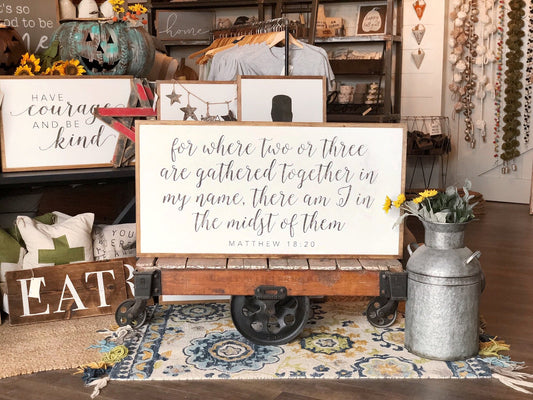 it's so
good to be
home
HAVE
courage
AND BE
kind
for where two or three
are gathered together in
my name, there am I in
the midst of them
MATTHEW 18:20
EAT